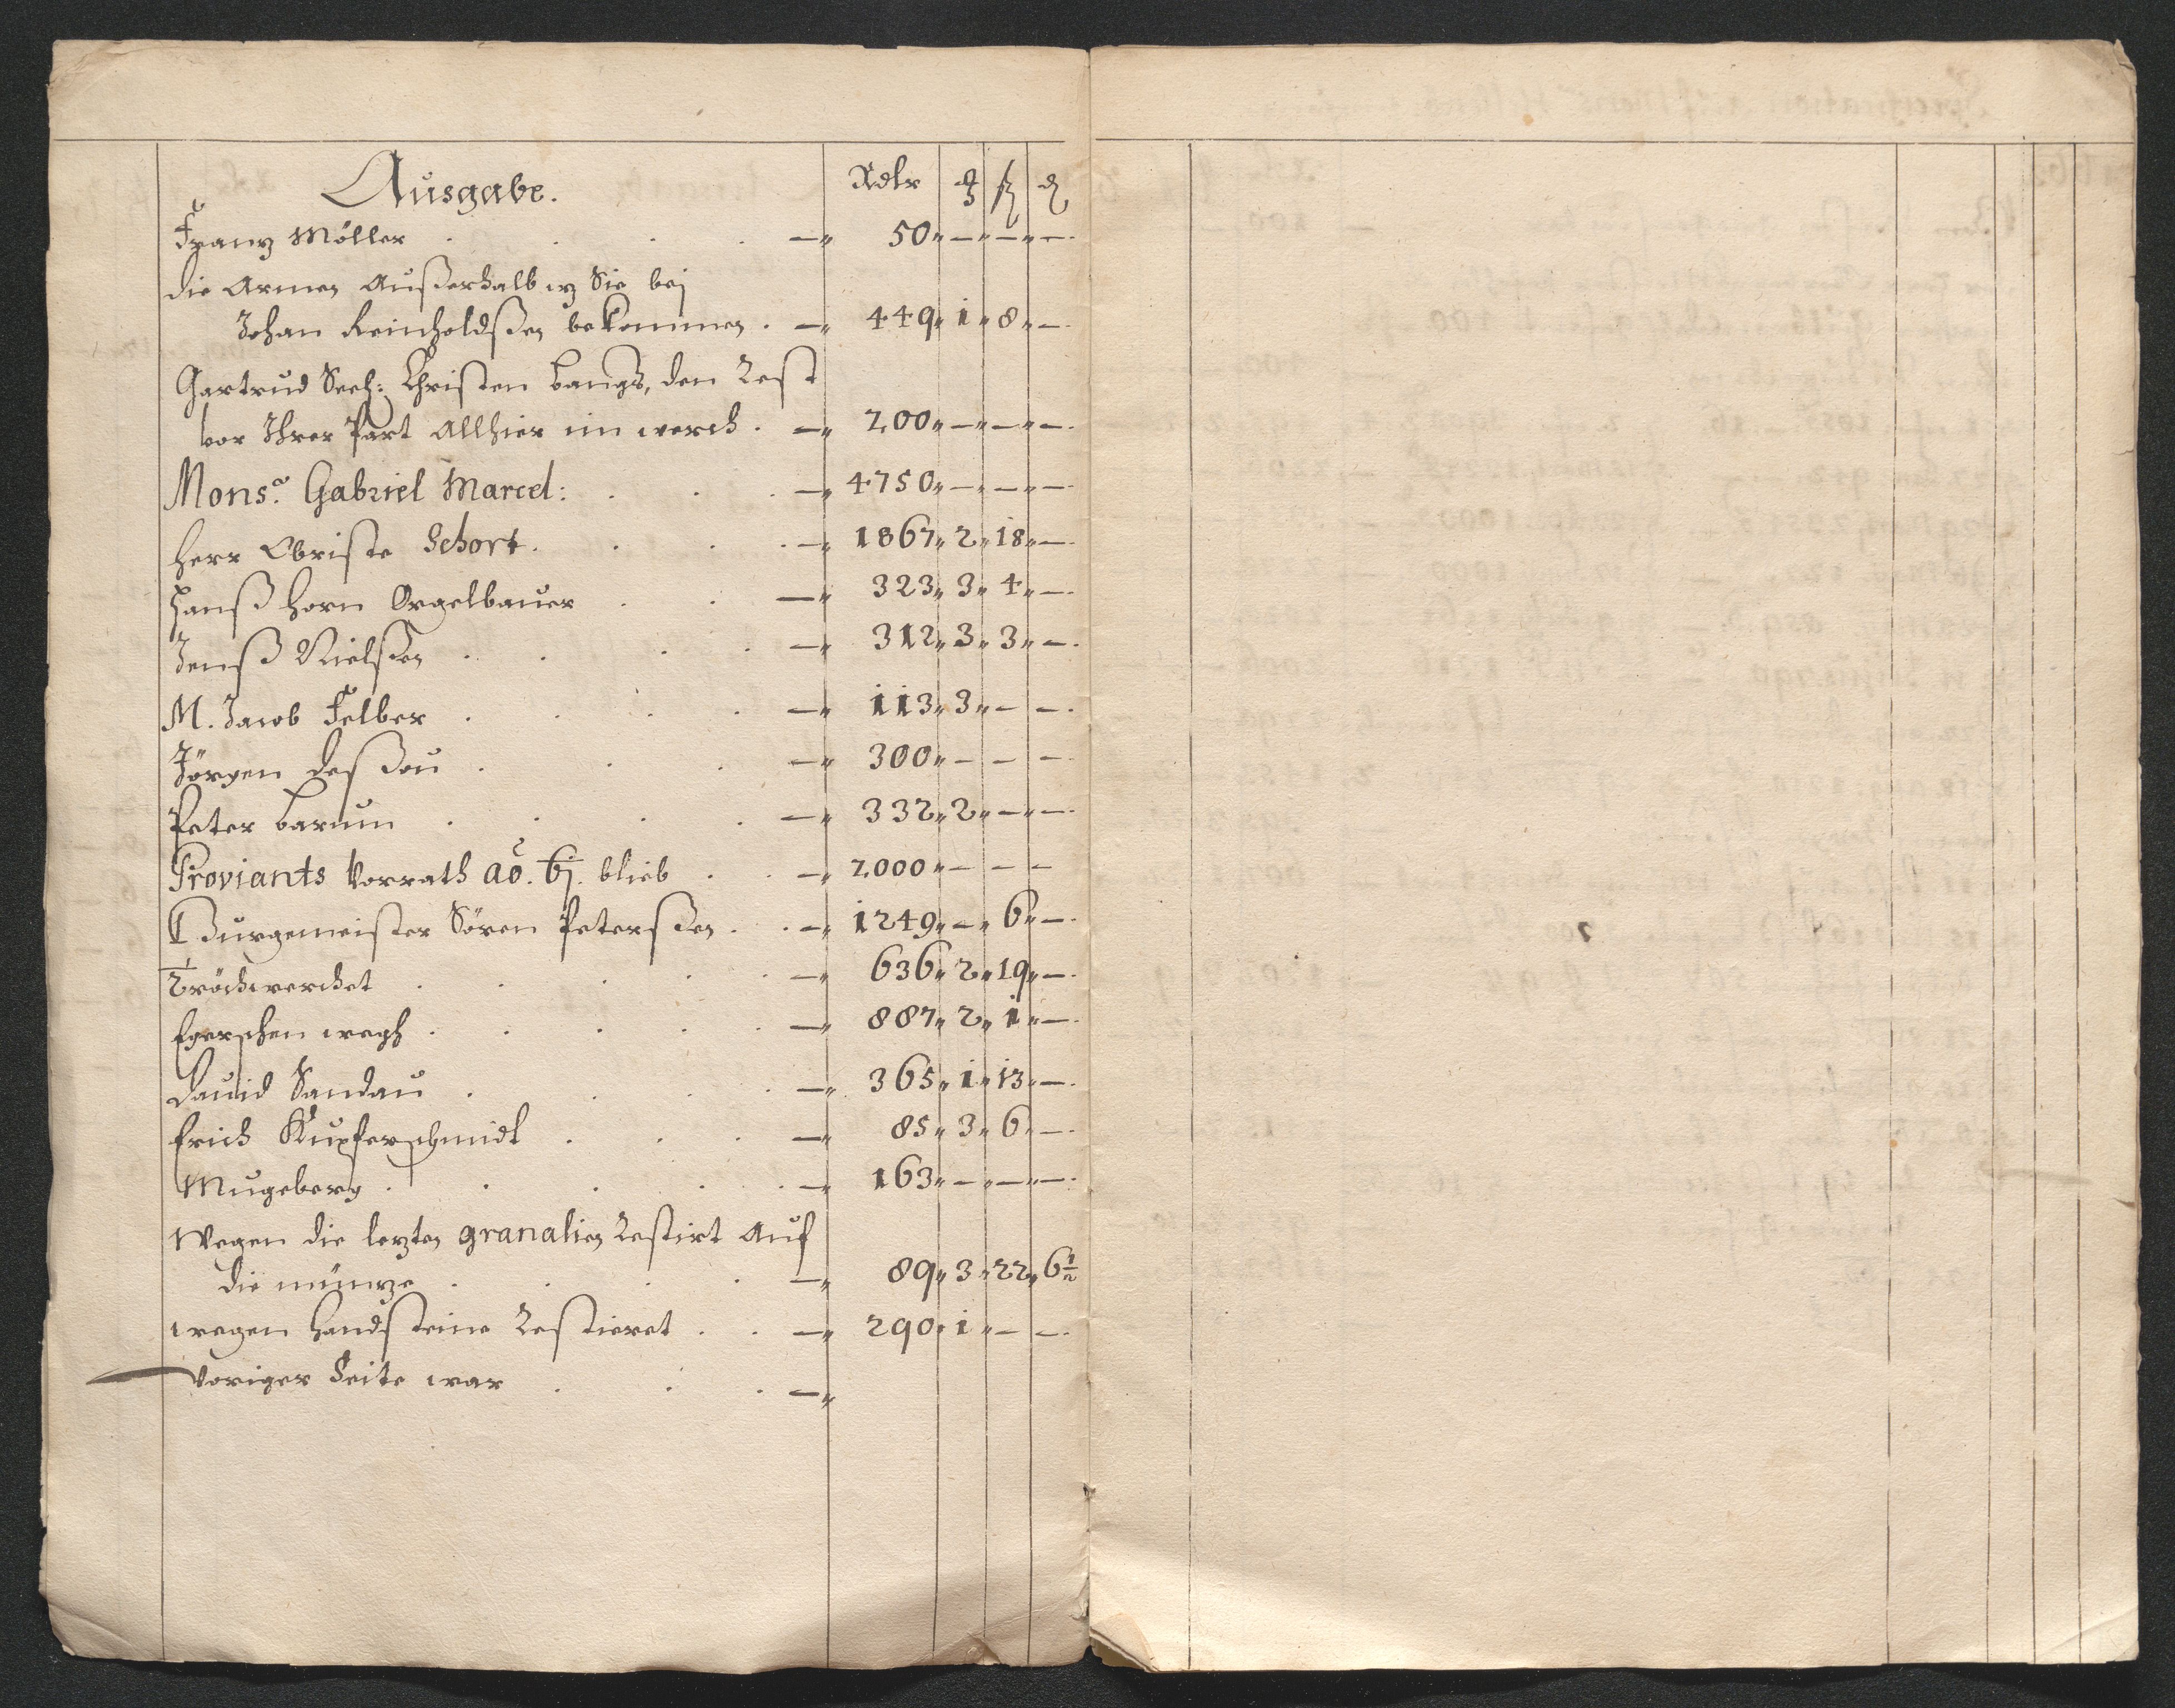 Ausgabe. Rdlr ꝗ ß ₰
Frantz Möller . . . . —" 50"—"—"—.
die Armen Außerhalb wz Sie bej
Johan Reinholdßen bekommen . —" 449" 1" 8"—.
Gertrud Seel: Christen Bangs, den Rest
vor Ihrer Part Allhier im werck . —" 200"—"—"—.
Monsr. Gabriel Marcel: . . . —" 4750"—"—"—
Herr Obriste Schort. . . . —" 1867" 2" 18"—.
Hanß Horn Orgelbauer . . —" 323" 3" 4"—.
Jenß Nielßen . . . . —" 312" 3" 3"—.
M. Jacob Felber . . . . —" 113" 3"— —.
Jörgen Deßou . . . —" 300"— — —
Peter Barum . . . . —" 332" 2"—"—.
Proviants Vorrath ao. 6j. blieb . . —" 2000"— — —
Burgemeister Sören Peterßen . . —" 1249"—" 6"—.
Bröchwercket . . . . —" 636" 2" 19"—.
Egerschen wegh . . . . . —" 887" 2" 1"—.
David Sandau . . . . —" 365" 1" 13"—.
Erich Kupferschmidt . . . —" 85" 3" 6"—.
Mugeberg . . . . . —" 163"—"—"—.
Wegen die letzten granalien Restirt auf
die müntze . . . . —" 89" 3" 22" 6½
wegen Handsteine Restieret . . —" 290" 1"— —.
Voriger Seite war . . . —"